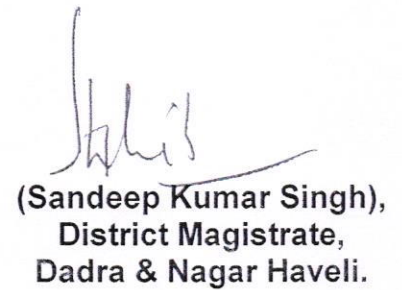 (Sandeep Kumar Singh),
District Magistrate,
Dadra & Nagar Haveli.